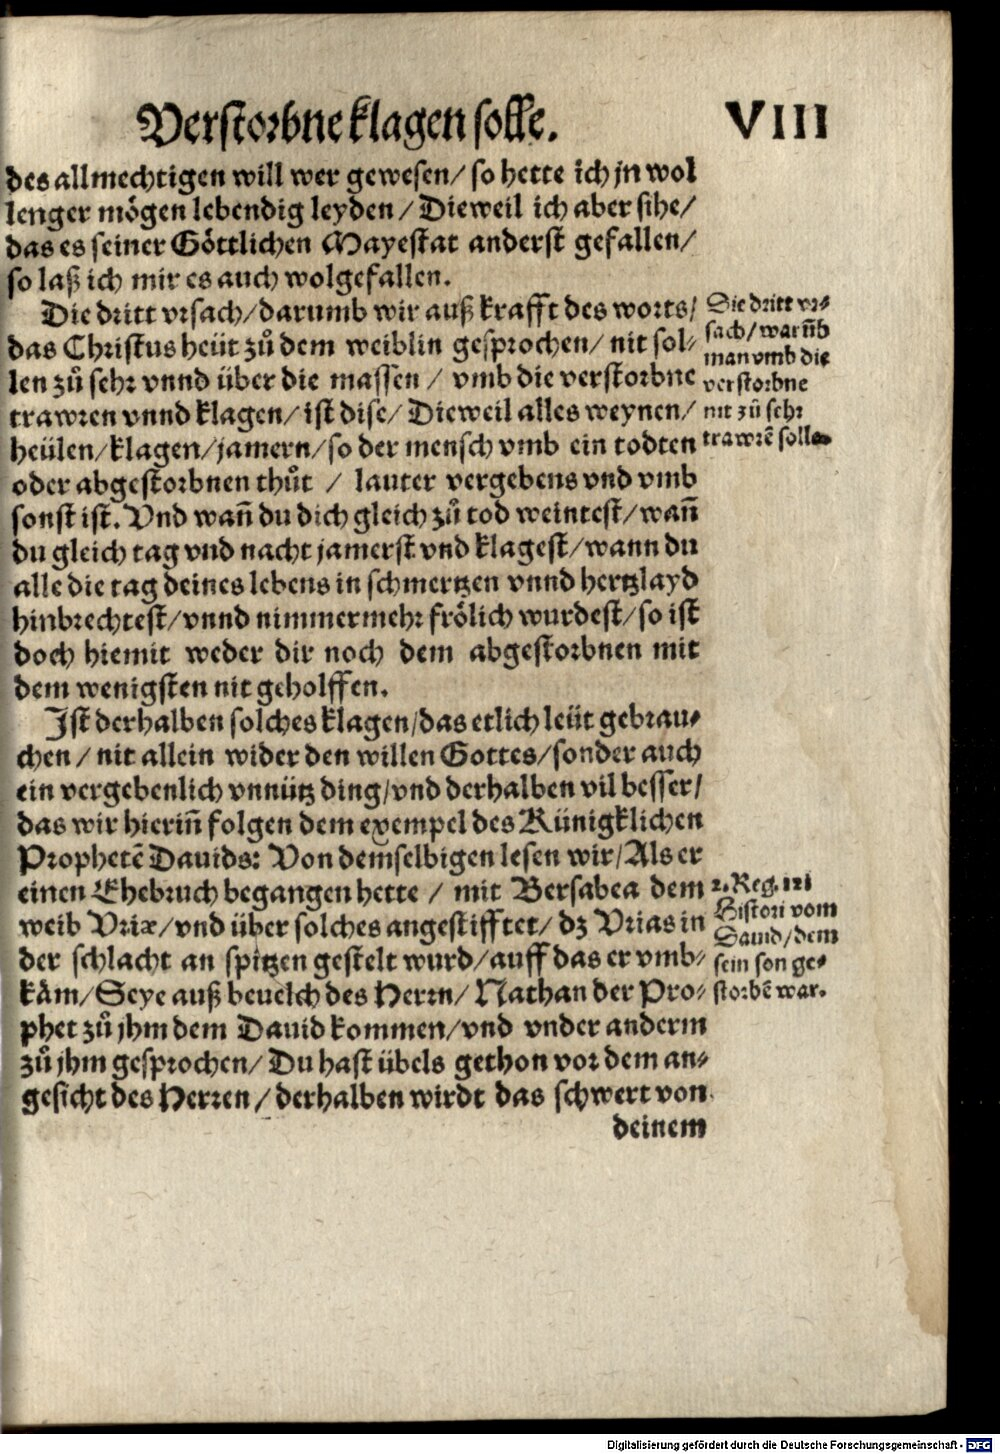 Verstorbne klagen solle. VIII
des allmechtigen will wer gewesen/ so hette ich jn wol
lenger mögen lebendig leyden/ Dieweil ich aber sihe/
das es seiner Göttlichen Mayestat anderst gefallen/
so laß ich mir es auch wolgefallen.
Die dritt vrsach/ darumb wir auß krafft des worts/
das Christus heüt zů dem weiblin gesprochen/ nit sol-
len zů sehr vnnd über die massen/ vmb die verstorbne
trawren vnnd klagen/ ist dise/ Dieweil alles weynen/
heülen/ klagen/ jamern/ so der mensch vmb ein todten
oder abgestorbnen thůt / lauter vergebens vnd vmb
sonst ist. Vnd wañ du dich gleich zů tod weintest/ wañ
du gleich tag vnd nacht jamerst vnd klagest/ wann du
alle die tag deines lebens in schmertzen vnnd hertzlayd
hinbrechtest/ vnnd nimmermehr frölich wurdest/ so ist
doch hiemit weder dir noch dem abgestorbnen mit
dem wenigsten nit geholffen.
Die dritt vr-
sach/ warũb
man vmb die
verstorbne
nit zů sehr
trawrẽ solle.
Ist derhalben solches klagen/ das etlich leüt gebrau-
chen/ nit allein wider den willen Gottes/ sonder auch
ein vergebenlich vnnütz ding/ vnd derhalben vil besser/
das wir hieriñ folgen dem exempel des Künigklichen
Prophetẽ Dauids: Von demselbigen lesen wir/ Als er
einen Ehebruch begangen hette / mit Bersabea dem
weib Vriæ/ vnd über solches angestifftet/ dz Vrias in
der schlacht an spitzen gestelt wurd/ auff das er vmb-
käm/ Seye auß beuelch des Herrn/ Nathan der Pro-
phet zů jhm dem Dauid kommen/ vnd vnder anderm
zů jhm gesprochen/ Du hast übels gethon vor dem an-
gesicht des Herren/ derhalben wirdt das schwert von
deinem
2. Reg. 12
Histori vom
Dauid/ dem
sein son ge-
storbẽ war.
Digitalisierung gefördert durch die Deutsche Forschungsgemeinschaft - DFG